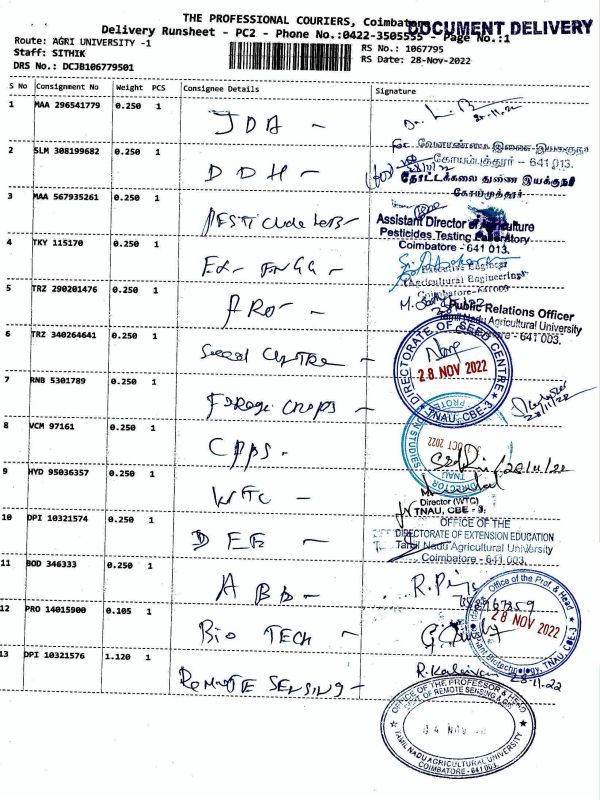 THE PROFESSIONAL COURIERS, Coimbatore
DOCUMENT DELIVERY
Delivery Runsheet - PC2 - Phone No.:0422-3505555 - Page No.:1
Route: AGRI UNIVERSITY -1
RS No.: 1067795
Staff: SITHIK
RS Date: 28-Nov-2022
DRS No.: DCJB106779501
S No Consignment No Weight PCS Consignee Details Signature
1 MAA 296541779 0.250 1 JDA -
வேளாண்மை இணை இயக்குநர்
2 SLM 308199682 0.250 1 DDH -
கோயம்புத்தூர் - 641 013.
தோட்டக்கலை துணை இயக்குநர்
கோயமுத்தூர்
3 MAA 567935261 0.250 1
Assistant Director of Agriculture
Pesticides Testing Laboratory
Coimbatore - 641 013.
4 TKY 115170 0.250 1
Executive Engineer
Agricultural Engineering
Coimbatore-641003
5 TRZ 290201476 0.250 1 PRO -
Public Relations Officer
Tamil Nadu Agricultural University
Coimbatore - 641 003.
6 TRZ 340264641 0.250 1 Seed Centre -
DIRECTORATE OF SEED CENTRE
28 NOV 2022
TNAU, CBE-3
7 RNB 5301789 0.250 1 Forage Crops -
28/11/22
8 VCM 97161 0.250 1 CPPS -
OCT 2022
DIRECTOR
TNAU
28/11/22
9 HYD 95036357 0.250 1 WTC -
Director (WTC)
TNAU, CBE - 3.
10 DPI 10321574 0.250 1 DEE -
OFFICE OF THE
DIRECTORATE OF EXTENSION EDUCATION
Tamil Nadu Agricultural University
Coimbatore - 641 003.
11 BOD 346333 0.250 1 ABD -
12 PRO 14015900 0.105 1 BIO TECH -
Office of the Prof. & Head
28 NOV 2022
Plant Biotechnology, TNAU, CBE-3
13 DPI 10321576 1.120 1 REMOTE SENSING -
28-11-22
OFFICE OF THE PROFESSOR & HEAD
DEPT. OF REMOTE SENSING & GIS
TAMIL NADU AGRICULTURAL UNIVERSITY
COIMBATORE - 641 003.